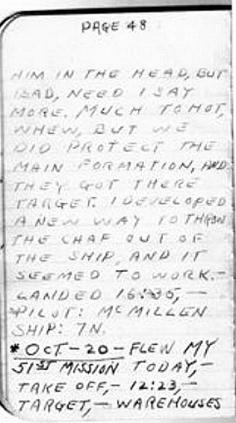 PAGE 48
HIM IN THE HEAD, BUT
BAD, NEED I SAY
MORE. MUCH TO HOT,
WHEW, BUT WE
DID PROTECT THE
MAIN FORMATION, AND
THEY GOT THERE
TARGET. I DEVELOPED
A NEW WAY TO THROW
THE CHAF OUT OF
THE SHIP, AND IT
SEEMED TO WORK.-
LANDED 16:35,-
PILOT: McMILLEN
SHIP: 7N.
*OCT-20- FLEW MY
51ST MISSION TODAY,-
TAKE OFF,- 12:23,-
TARGET,- WAREHOUSES